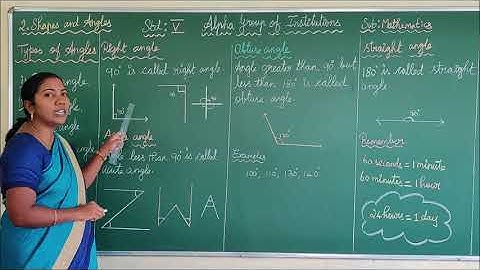 2. Shapes and Angles
Std: V
Alpha Group of Institutions
Sub: Mathematics
Types of Angles
angle
angle
Right angle
90° is called right angle.
90°
90°
angle
less than 90° is called
acute angle.
Obtuse angle
Angle greater than 90° but
less than 180° is called
obtuse angle.
Examples
100°, 110°, 130°, 140°
straight angle
180° is called straight
angle.
Remember
60 seconds = 1 minute
60 minutes = 1 hour
24 hours = 1 day